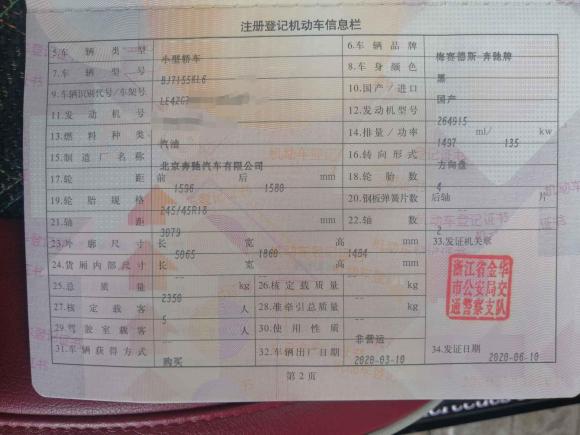 注册登记机动车信息栏
5.车辆类型 小型轿车 6.车辆品牌 梅赛德斯-奔驰牌
7.车辆型号 BJ7155KL6 8.车身颜色 黑
9.车辆识别代号/车架号 LE4ZG7 10.国产/进口 国产
11.发动机号 12.发动机型号 264915
13.燃料种类 汽油 14.排量/功率 1497 ml/ 135 kw
15.制造厂名称 北京奔驰汽车有限公司 16.转向形式 方向盘
17.轮距 前 1596 后 1580 mm 18.轮胎数 4
19.轮胎规格 245/45R18 20.钢板弹簧片数 后轴 -- 片
21.轴距 3079 mm 22.轴数 2
23.外廓尺寸 长 5065 宽 1860 高 1484 mm 33.发证机关章
24.货厢内部尺寸 长 -- 宽 -- 高 -- mm
浙江省金华
市公安局交
通警察支队
25.总质量 2350 kg 26.核定载质量 -- kg
27.核定载客 5 人 28.准牵引总质量 -- kg
29.驾驶室载客 -- 人 30.使用性质 非营运
31.车辆获得方式 购买 32.车辆出厂日期 2020-03-10 34.发证日期 2020-06-10
第2页